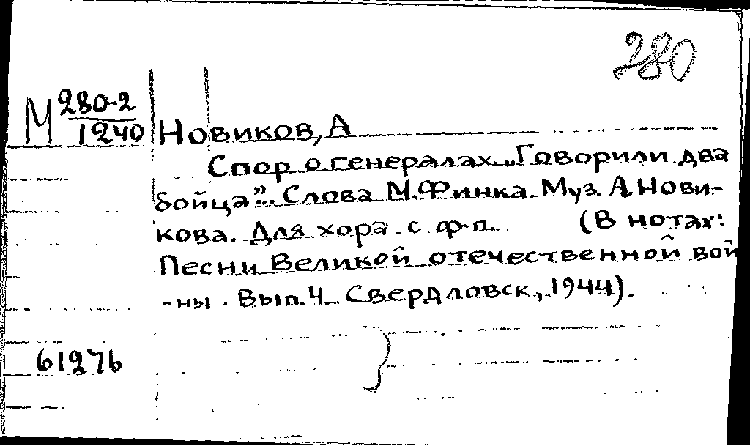 280
М 280-2
1240
Новиков, А
Спор о генералах „Говорили два
бойца”. Слова М. Финка. Муз. А. Нови-
кова. Для хора с ф-п. (В нотах:
Песни Великой отечественной вой
-ны. Вып. 4. Свердловск, 1944).
61276